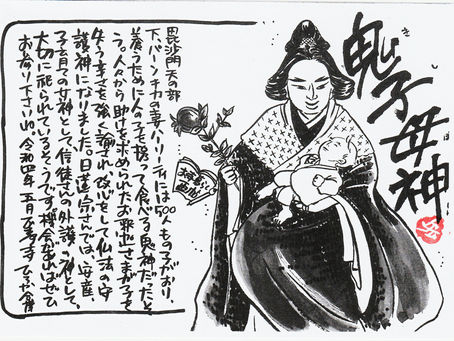 鬼子母神
毘沙門天の部
下、パーンチカの妻ハーリーティには500人もの子がおり、
養うために人の子を攫って食べる鬼神だったと
う。人々から助けを求められたお釈迦さまが子を
失う辛さを強く諭され改心をして仏法の守
護神になりました。日蓮宗さんでは、安産
子育ての女神として、信徒さんの外護の神として、
大切に祀られているそうです。機会あればぜひ
お参り下さいね。令和四年 五月